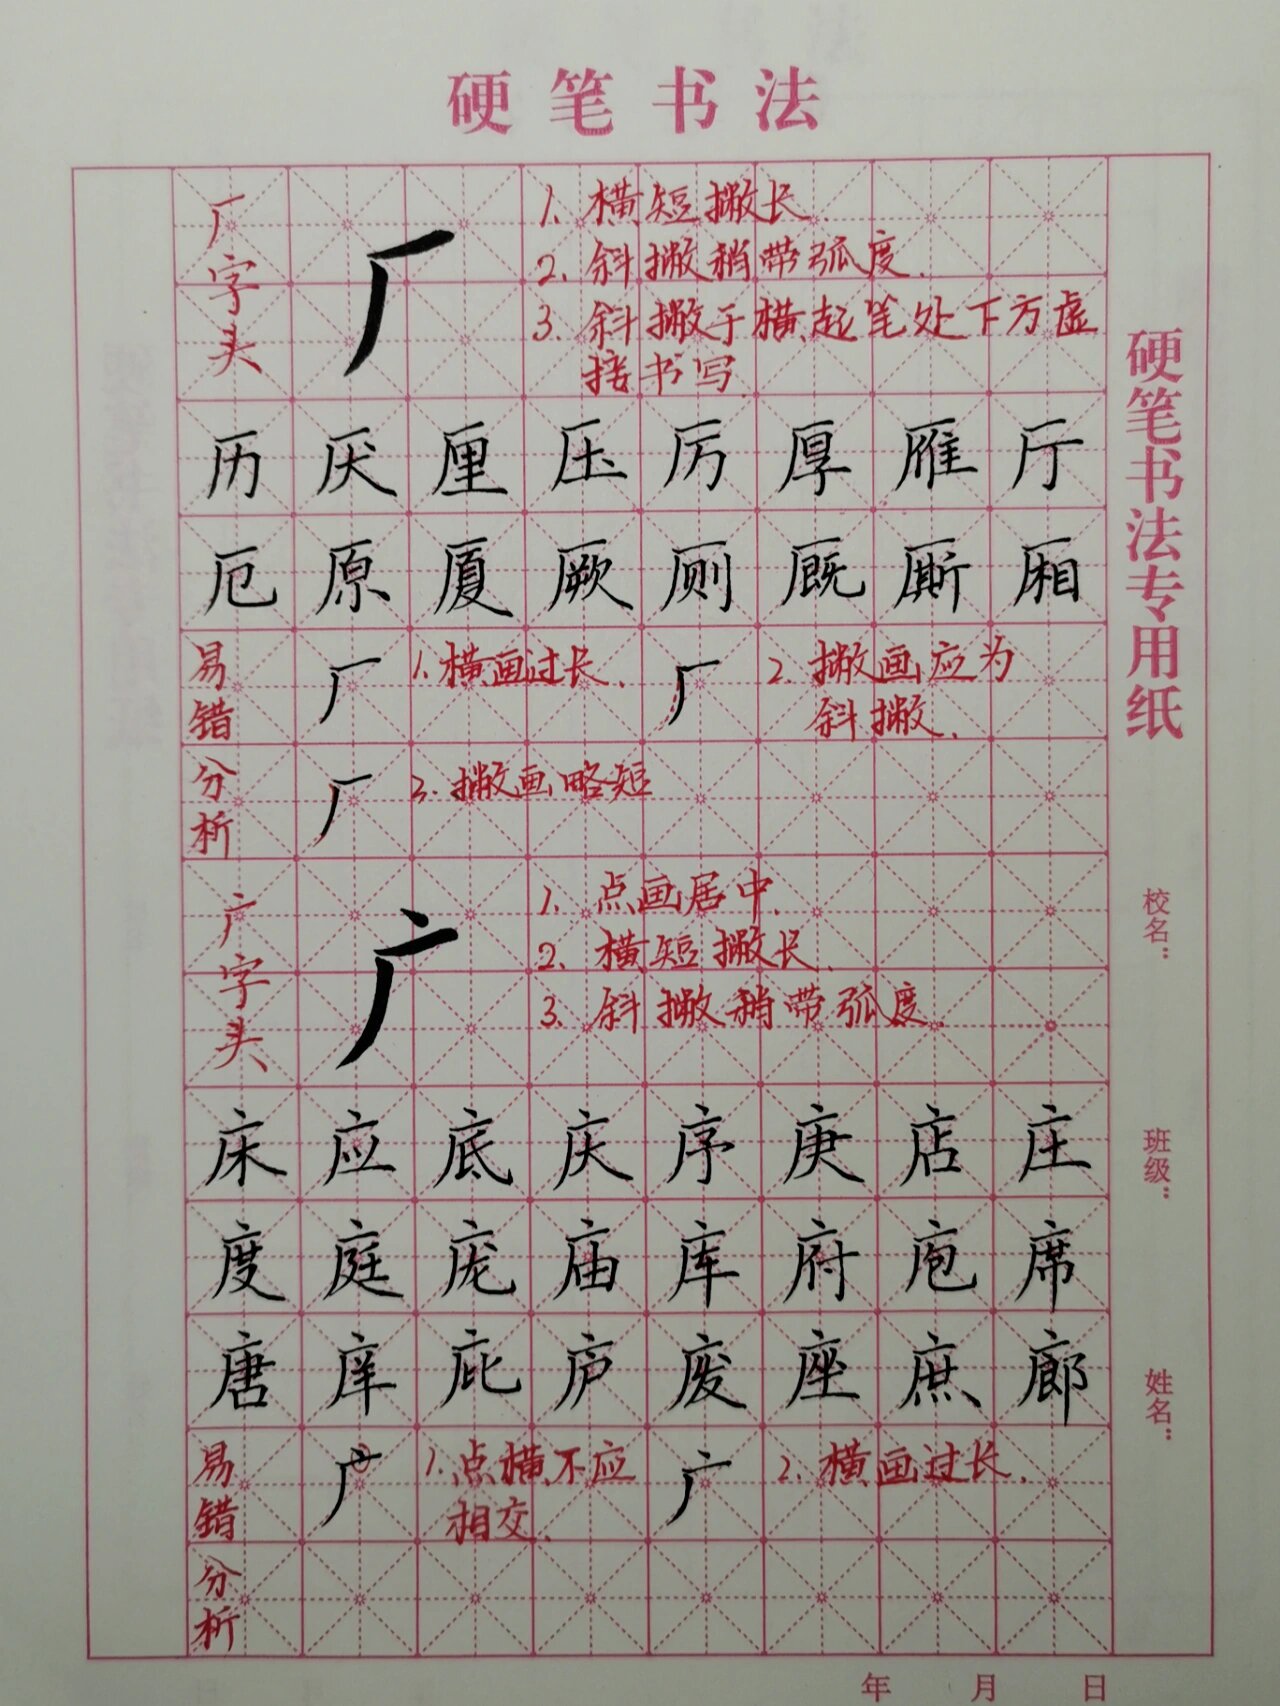 硬笔书法
厂字头
厂
1. 横短撇长.
2. 斜撇稍带弧度.
3. 斜撇于横起笔处下方虚
接书写.
历厌厘压厉厚雁厅
厄原厦厥厕厩厮厢
易错分析
厂 1. 横画过长.
厂 2. 撇画应为
斜撇.
厂 3. 撇画略短
广字头
广
1. 点画居中.
2. 横短撇长.
3. 斜撇稍带弧度.
床应底庆序庚店庄
度庭庞庙库府庖席
唐庠庇庐废座庶廊
易错分析
广 1. 点横不应
相交.
广 2. 横画过长.
硬笔书法专用纸
校名：
班级：
姓名：
年 月 日